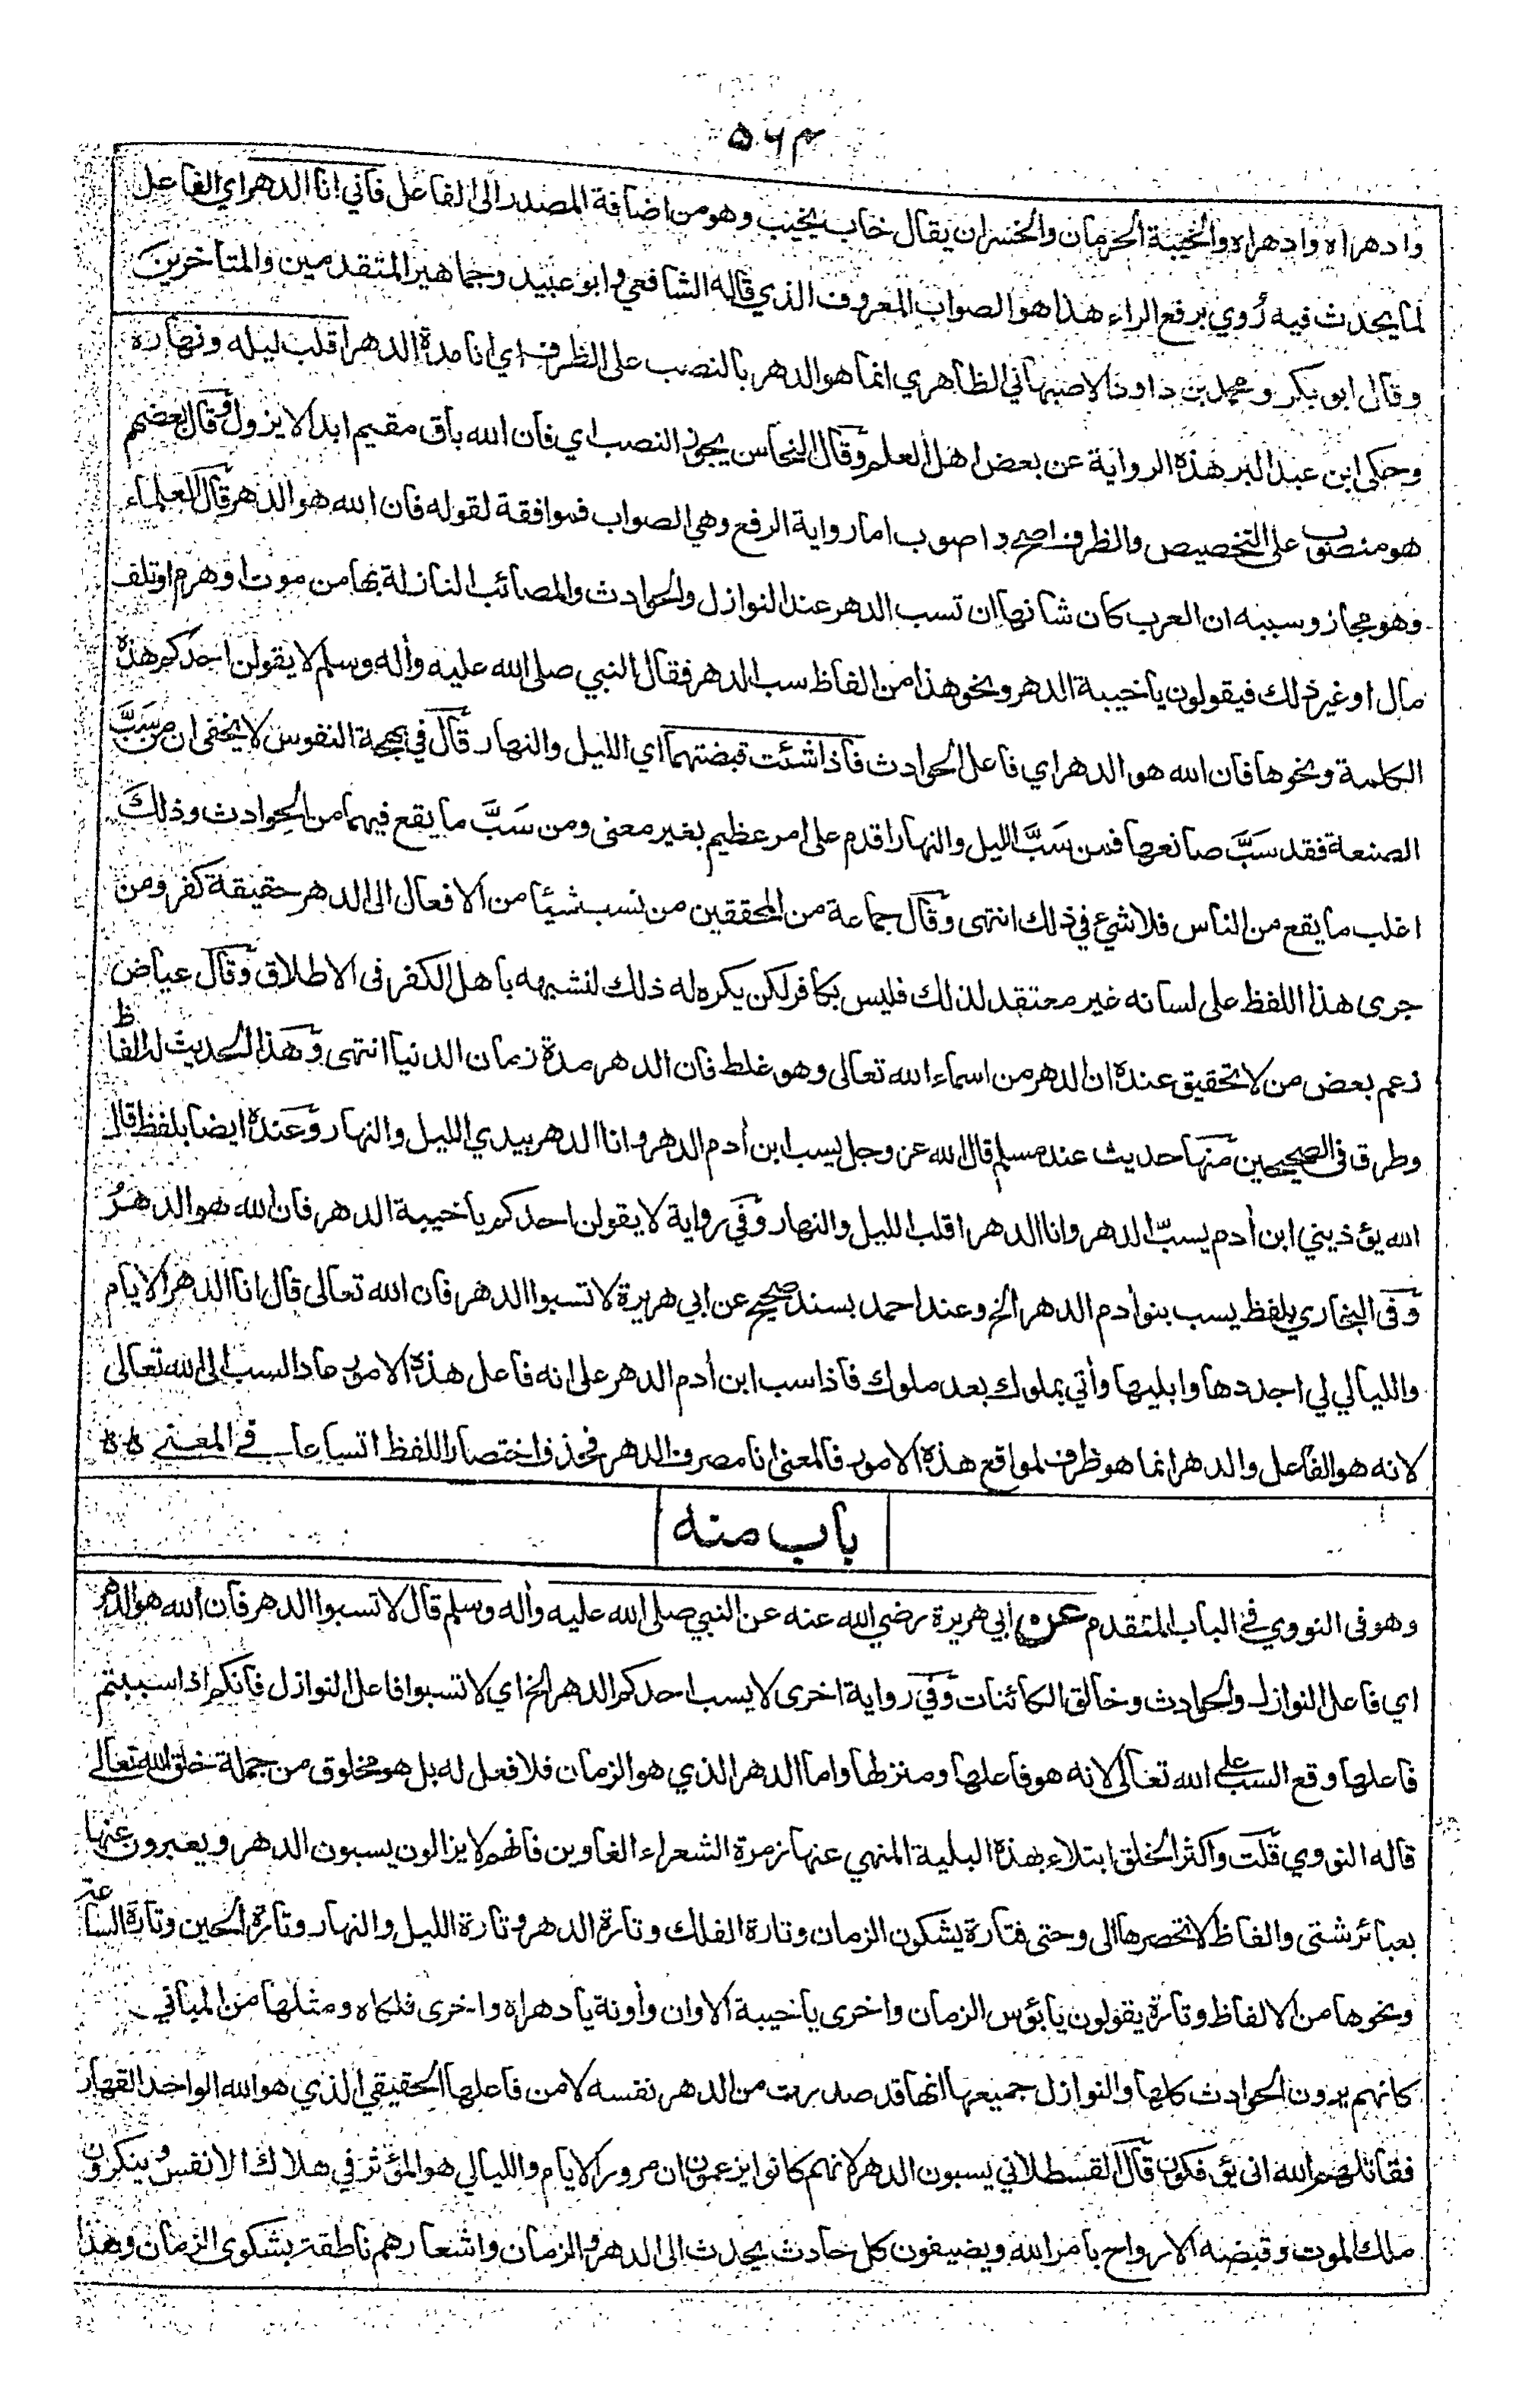 ٥٦٣
وادهراه وادهراه والخيبة الحرمان والخسران يقال خاب يخيب وهو من اضافة المصدر الى الفاعل فاني انا الدهر اي الفاعل
لما يحدث فيه رُوي برفع الراء هذا هو الصواب المعروف الذي قاله الشافعي وابو عبيد وجماهير المتقدمين والمتأخرين
وقال ابو بكر ومحمد بن داود الاصبهاني الظاهري انما هو الدهر بالنصب على الظرف اي انا مدة الدهر اقلب ليله ونهاره
وحكى ابن عبد البر هذه الرواية عن بعض اهل العلم وقال النحاس يجوز النصب اي فان الله باق مقيم ابدا لا يزول وقال بعضهم
هو منصوب على التخصيص والظرف اصح واصوب اما رواية الرفع وهي الصواب فموافقة لقوله فان الله هو الدهر قال العلماء
وهو مجاز وسببه ان العرب كان شانها ان تسب الدهر عند النوازل والحوادث والمصائب النازلة بها من موت او هرم او تلف
مال او غير ذلك فيقولون يا خيبة الدهر ونحو هذا من الفاظ سب الدهر فقال النبي صلى الله عليه وأله وسلم لا يقولن احدكم هذه
الكلمة ونحوها فان الله هو الدهر اي فاعل الحوادث فاذا شئت قبضتهما اي الليل والنهار قال في بهجة النفوس لا يخفى ان من سَبَّ
الصنعة فقد سَبَّ صانعها فمن سَبَّ الليل والنهار اقدم على امر عظيم بغير معنى ومن سَبَّ ما يقع فيهما من الحوادث وذلك
اغلب ما يقع من الناس فلا شيئ في ذلك انتهى وقال جماعة من المحققين من نسب شيئا من الافعال الى الدهر حقيقة كفر ومن
جرى هذا اللفظ على لسانه غير معتقد لذلك فليس بكافر لكن يكره له ذلك لتشبهه باهل الكفر فى الاطلاق وقال عياض
زعم بعض من لا تحقيق عنده ان الدهر من اسماء الله تعالى وهو غلط فان الدهر مدة زمان الدنيا انتهى وهذا الحديث له الفاظ
وطرق فى الصحيحين منها حديث عند مسلم قال الله عز وجل يسب ابن أدم الدهر وانا الدهر بيدي الليل والنهار وعنده ايضا بلفظ قال
الله يؤذيني ابن أدم يسبّ الدهر وانا الدهر اقلب الليل والنهار وفي رواية لا يقولن احدكم يا خيبة الدهر فان الله هو الدهرُ
وفى البخاري بلفظ يسب بنو أدم الدهر الخ وعند احمد بسند صحيح عن ابي هريرة لا تسبوا الدهر فان الله تعالى قال انا الدهر الايام
والليالي لي اجددها وابليها وأتي بملوك بعد ملوك فاذا سب ابن أدم الدهر على انه فاعل هذه الامور عاد السب الى الله تعالى
لانه هو الفاعل والدهر انما هو ظرف لمواقع هذه الامور فالمعنى انا مصرف الدهر فحذف اختصارا للفظ اتساعا في المعنى
باب منه
وهو فى النووي في الباب المتقدم عن ابي هريرة رضي الله عنه عن النبي صلى الله عليه وأله وسلم قال لا تسبوا الدهر فان الله هو الدهر
اي فاعل النوازل والحوادث وخالق الكائنات وفي رواية اخرى لا يسب احدكم الدهر الخ اي لا تسبوا فاعل النوازل فانكم اذا سببتم
فاعلها وقع السب على الله تعالى لانه هو فاعلها ومنزلها واما الدهر الذي هو الزمان فلا فعل له بل هو مخلوق من جملة خلق الله تعالى
قاله النووي قلت واكثر الخلق ابتلاء بهذه البلية المنهي عنها زمرة الشعراء الغاوين فانهم لا يزالون يسبون الدهر ويعبرون عنها
بعبائر شتى والفاظ لا تحصرها الى وحتى فتارة يشكون الزمان وتارة الفلك وتارة الدهر وتارة الليل والنهار وتارة الحين وتارة الساعة
ونحوها من الالفاظ وتارة يقولون يا بؤس الزمان واخرى يا خيبة الاوان وأونة يا دهراه واخرى فلكاه ومثلها من المباني
كانهم يرون الحوادث كلها والنوازل جميعها انها قد صدرت من الدهر نفسه لا من فاعلها الحقيقي الذي هو الله الواحد القهار
فقاتلهم الله انى يؤفكون قال القسطلاني يسبون الدهر لانهم كانوا يزعمون ان مرور الايام والليالي هو المؤثر في هلاك الانفس وينكرون
ملك الموت وقبضه الارواح بامر الله ويضيفون كل حادث يحدث الى الدهر والزمان واشعارهم ناطقة بشكوى الزمان وهذا